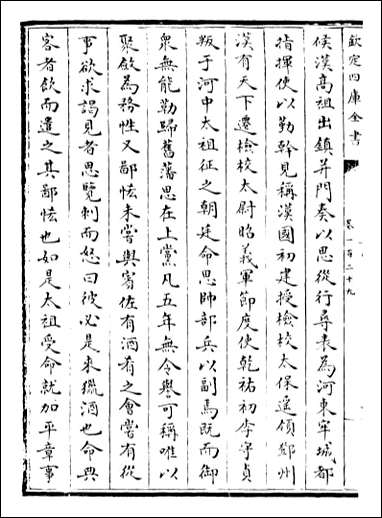 欽定四庫全書
卷一百二十九
侯漢高祖出鎮并門奏以思從行尋表為河東牢城都
指揮使以勤幹見稱漢國初建授檢校太保遙領鄧州
漢有天下遷檢校太尉昭義軍節度使乾祐初李守貞
叛于河中太祖征之朝廷命思帥部兵以副焉既而御
衆無能勒歸舊藩思在上黨凡五年無令譽可稱唯以
聚斂為務性又鄙悋未嘗與賓佐有酒肴之會嘗有從
事欲求謁見者思覽刺而怒曰彼必是來獵酒也命典
客者飲而遣之其鄙悋也如是太祖受命就加平章事